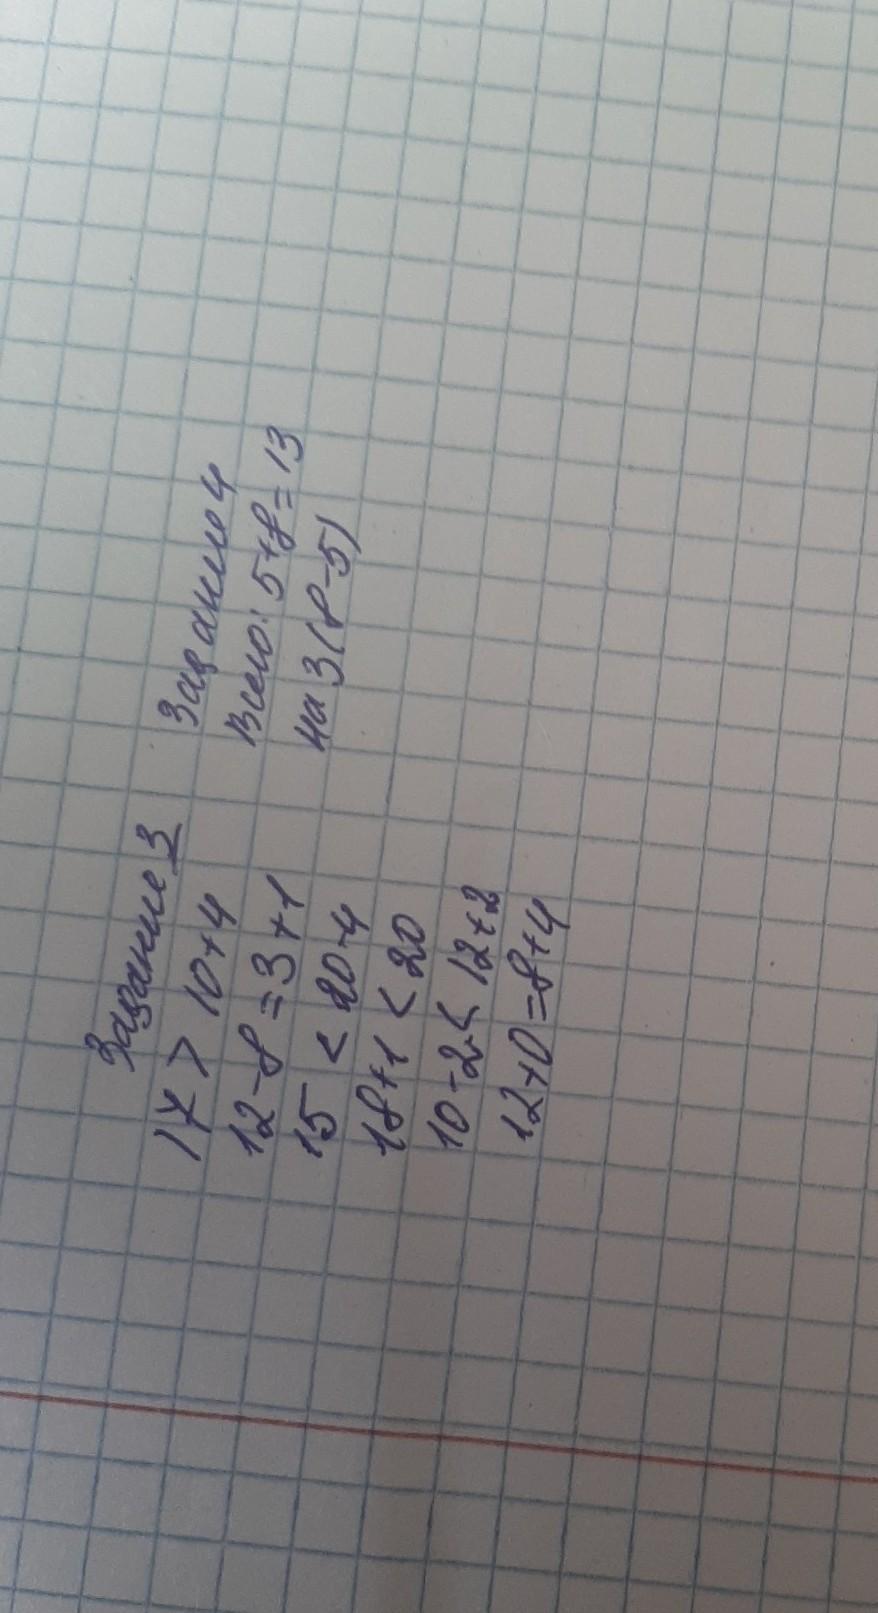 Задание 3
17 > 10+4
12-8 = 3+1
15 < 20-4
18+1 < 20
10-2 < 12+2
12+0 = 8+4
Задание 4
Всего: 5+8=13
на 3 (8-5)